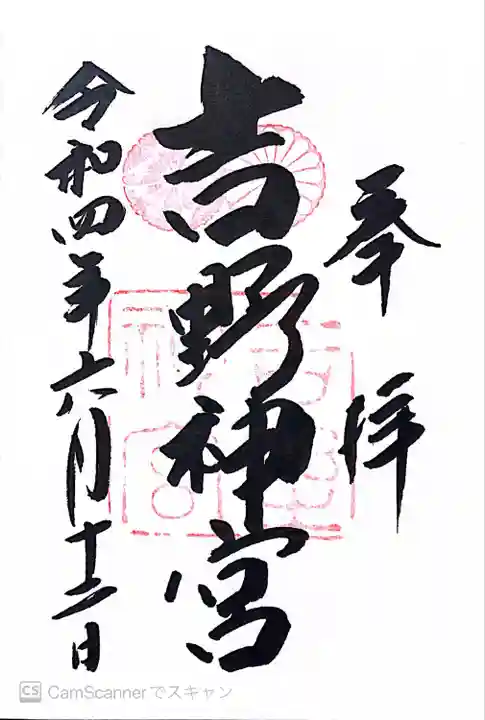 奉拝
吉野神宮
令和四年六月十二日
吉野神宮
CS CamScannerでスキャン